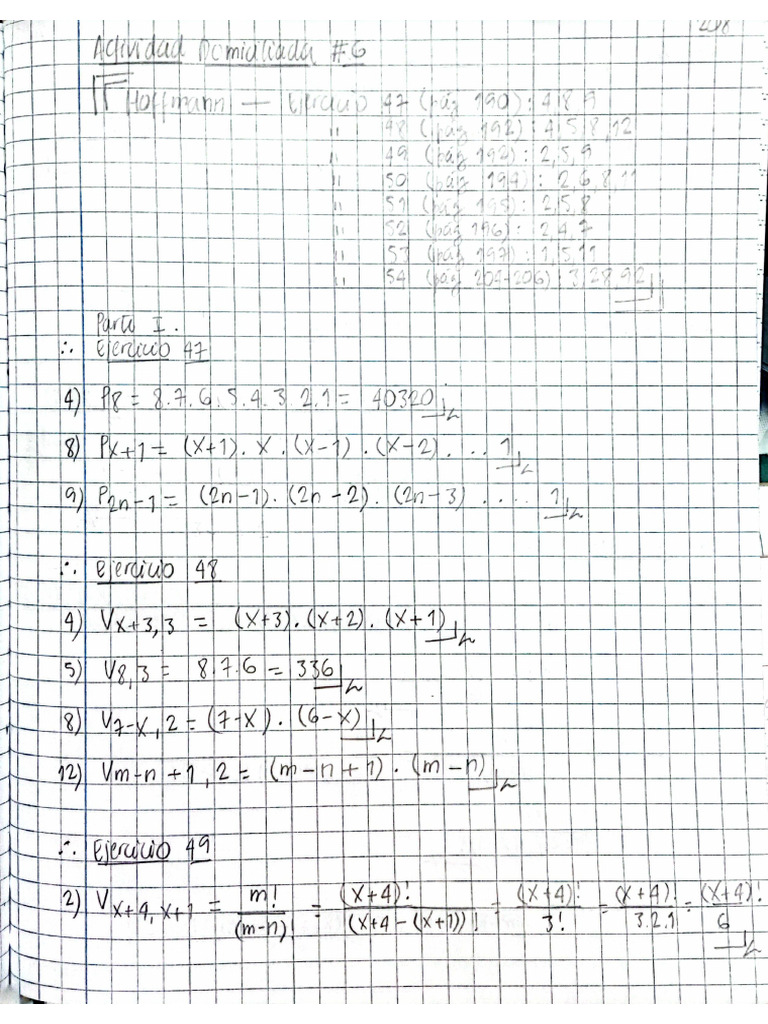 208
Actividad Domiciliada #6
Hoffmann — Ejercicio 47 (pág 190): 4,8,9
" 48 (pág 192): 4,5,8,12
" 49 (pág 192): 2,5,9
" 50 (pág 194): 2,6,8,11
" 51 (pág 195): 2,5,8
" 52 (pág 196): 2,4,7
" 53 (pág 197): 1,5,11
" 54 (pág 204-206): 3,28,92
Parte I.
∴ Ejercicio 47
4) P8 = 8.7.6.5.4.3.2.1 = 40320
8) Px+1 = (x+1). x . (x-1) . (x-2) . ... 1
9) P2n-1 = (2n-1). (2n-2). (2n-3) .... 1
∴ Ejercicio 48
4) Vx+3,3 = (x+3).(x+2).(x+1)
5) V8,3 = 8.7.6 = 336
8) V7-x,2 = (7-x). (6-x)
12) Vm-n+1,2 = (m-n+1). (m-n)
∴ Ejercicio 49
2) Vx+4,x+1 = m!/(m-n)! = (x+4)!/(x+4-(x+1))! = (x+4)!/3! = (x+4)!/3.2.1 = (x+4)!/6